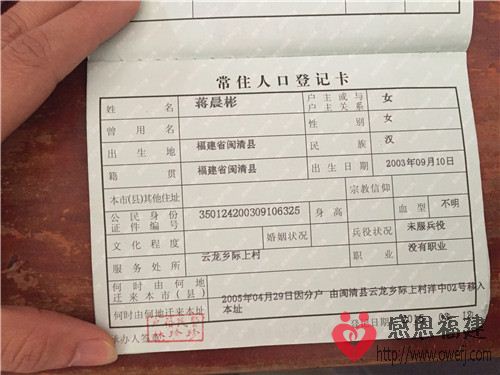 常住人口登记卡
姓 名 蒋晨彬 户主或与户主关系 女
曾用名 性别 女
出生地 福建省闽清县 民族 汉
籍贯 福建省闽清县 出生日期 2003年09月10日
本市(县)其他住址 宗教信仰
公民身份证件编号 350124200309106325 身高 血型 不明
文化程度 婚姻状况 兵役状况 未服兵役
服务处所 云龙乡际上村 职业 没有职业
何时由何地迁来本市(县)
何时由何地迁来本址 2005年04月29日因分户 由闽清县云龙乡际上村洋中02号移入本址
承办人签章
登记日期
感恩福建
www.owefj.com